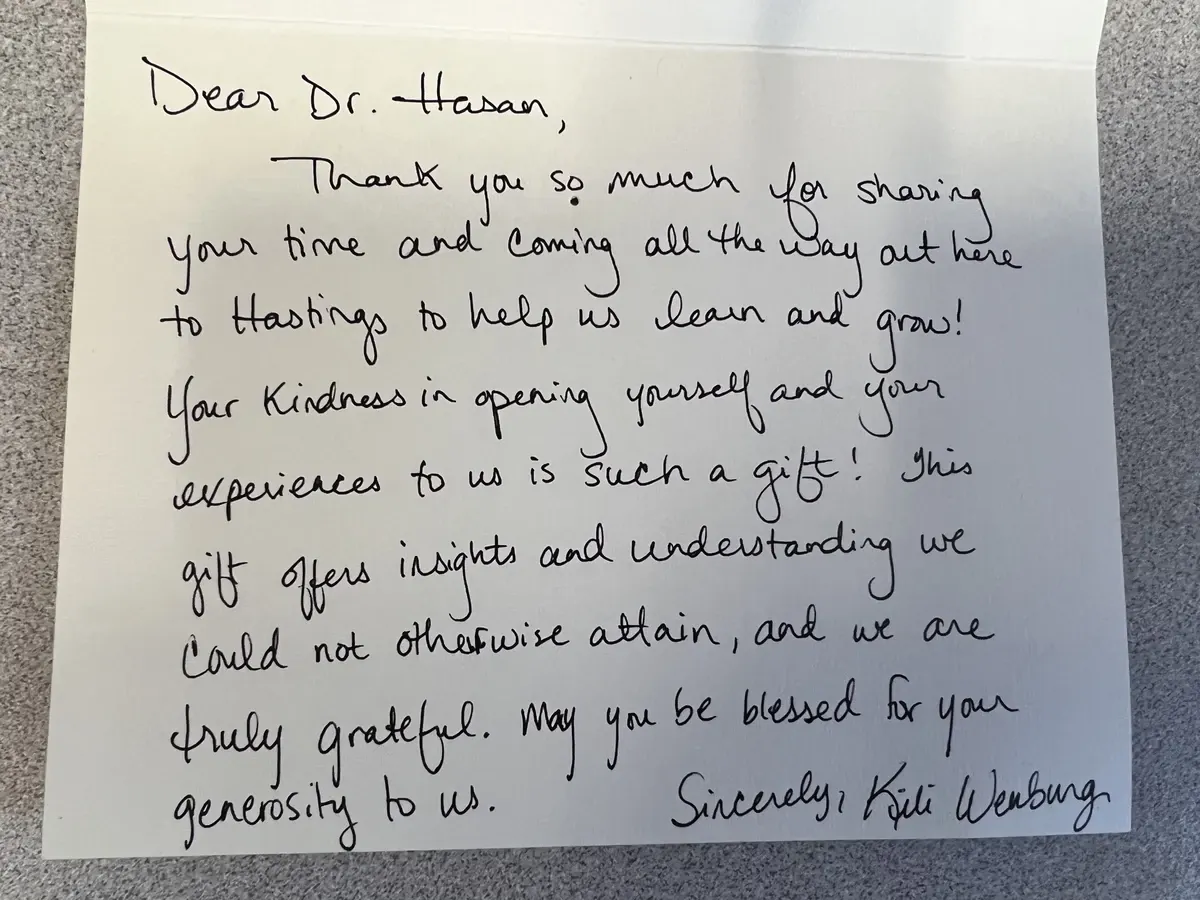 Dear Dr. Hasan,
Thank you so much for sharing
your time and coming all the way out here
to Hastings to help us learn and grow!
Your kindness in opening yourself and your
experiences to us is such a gift! This
gift offers insights and understanding we
could not otherwise attain, and we are
truly grateful. May you be blessed for your
generosity to us.
Sincerely, Wenburg